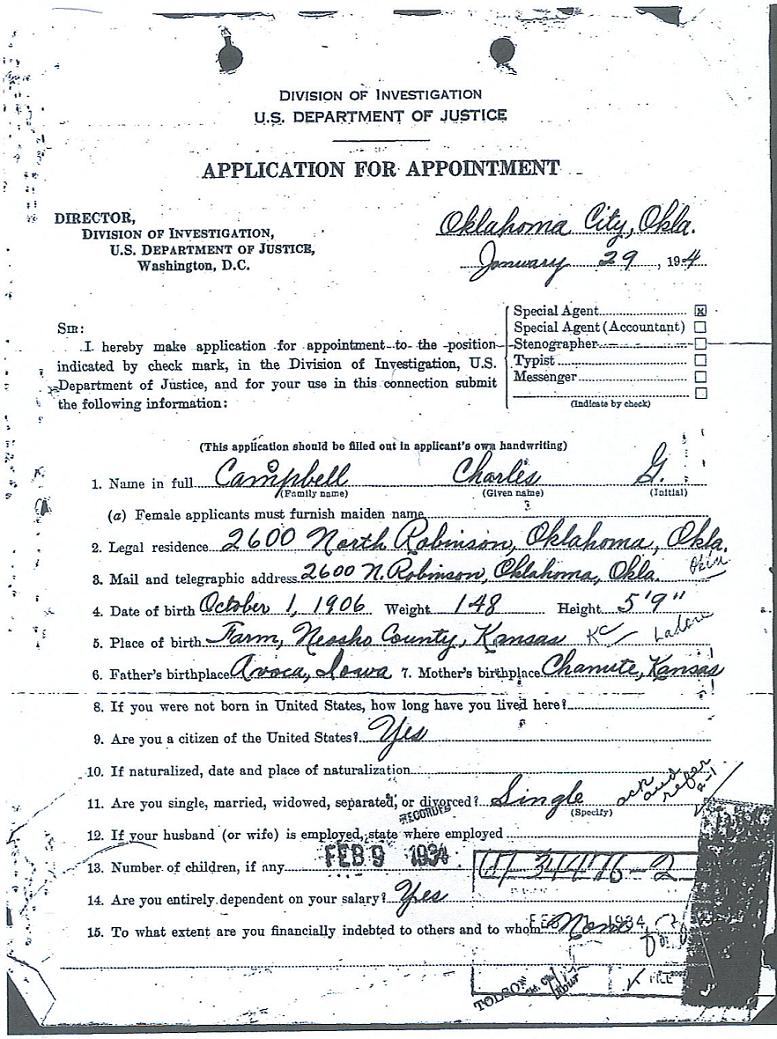 DIVISION OF INVESTIGATION
U.S. DEPARTMENT OF JUSTICE
APPLICATION FOR APPOINTMENT
DIRECTOR,
DIVISION OF INVESTIGATION,
U.S. DEPARTMENT OF JUSTICE,
Washington, D.C.
Oklahoma City, Okla.
January 29, 194
SIR:
I hereby make application for appointment to the position
indicated by check mark, in the Division of Investigation, U.S.
Department of Justice, and for your use in this connection submit
the following information:
Special Agent x
Special Agent (Accountant)
Stenographer
Typist
Messenger
(Indicate by check)
(This application should be filled out in applicant's own handwriting)
1. Name in full Campbell Charles G.
(Family name) (Given name) (Initial)
(a) Female applicants must furnish maiden name
2. Legal residence 2600 North Robinson, Oklahoma, Okla.
3. Mail and telegraphic address 2600 N. Robinson, Oklahoma, Okla.
4. Date of birth October 1, 1906 Weight 148 Height 5'9"
5. Place of birth Farm, Neosho County, Kansas KC
6. Father's birthplace Avoca, Iowa 7. Mother's birthplace Chanute, Kansas
8. If you were not born in United States, how long have you lived here?
9. Are you a citizen of the United States? Yes
10. If naturalized, date and place of naturalization
11. Are you single, married, widowed, separated, or divorced? Single
(Specify)
ack and refer
2-1
RECORDED
12. If your husband (or wife) is employed, state where employed
13. Number of children, if any
FEB 9 1934
14. Are you entirely dependent on your salary? Yes
15. To what extent are you financially indebted to others and to whom None
1934
TOLSON
FILE